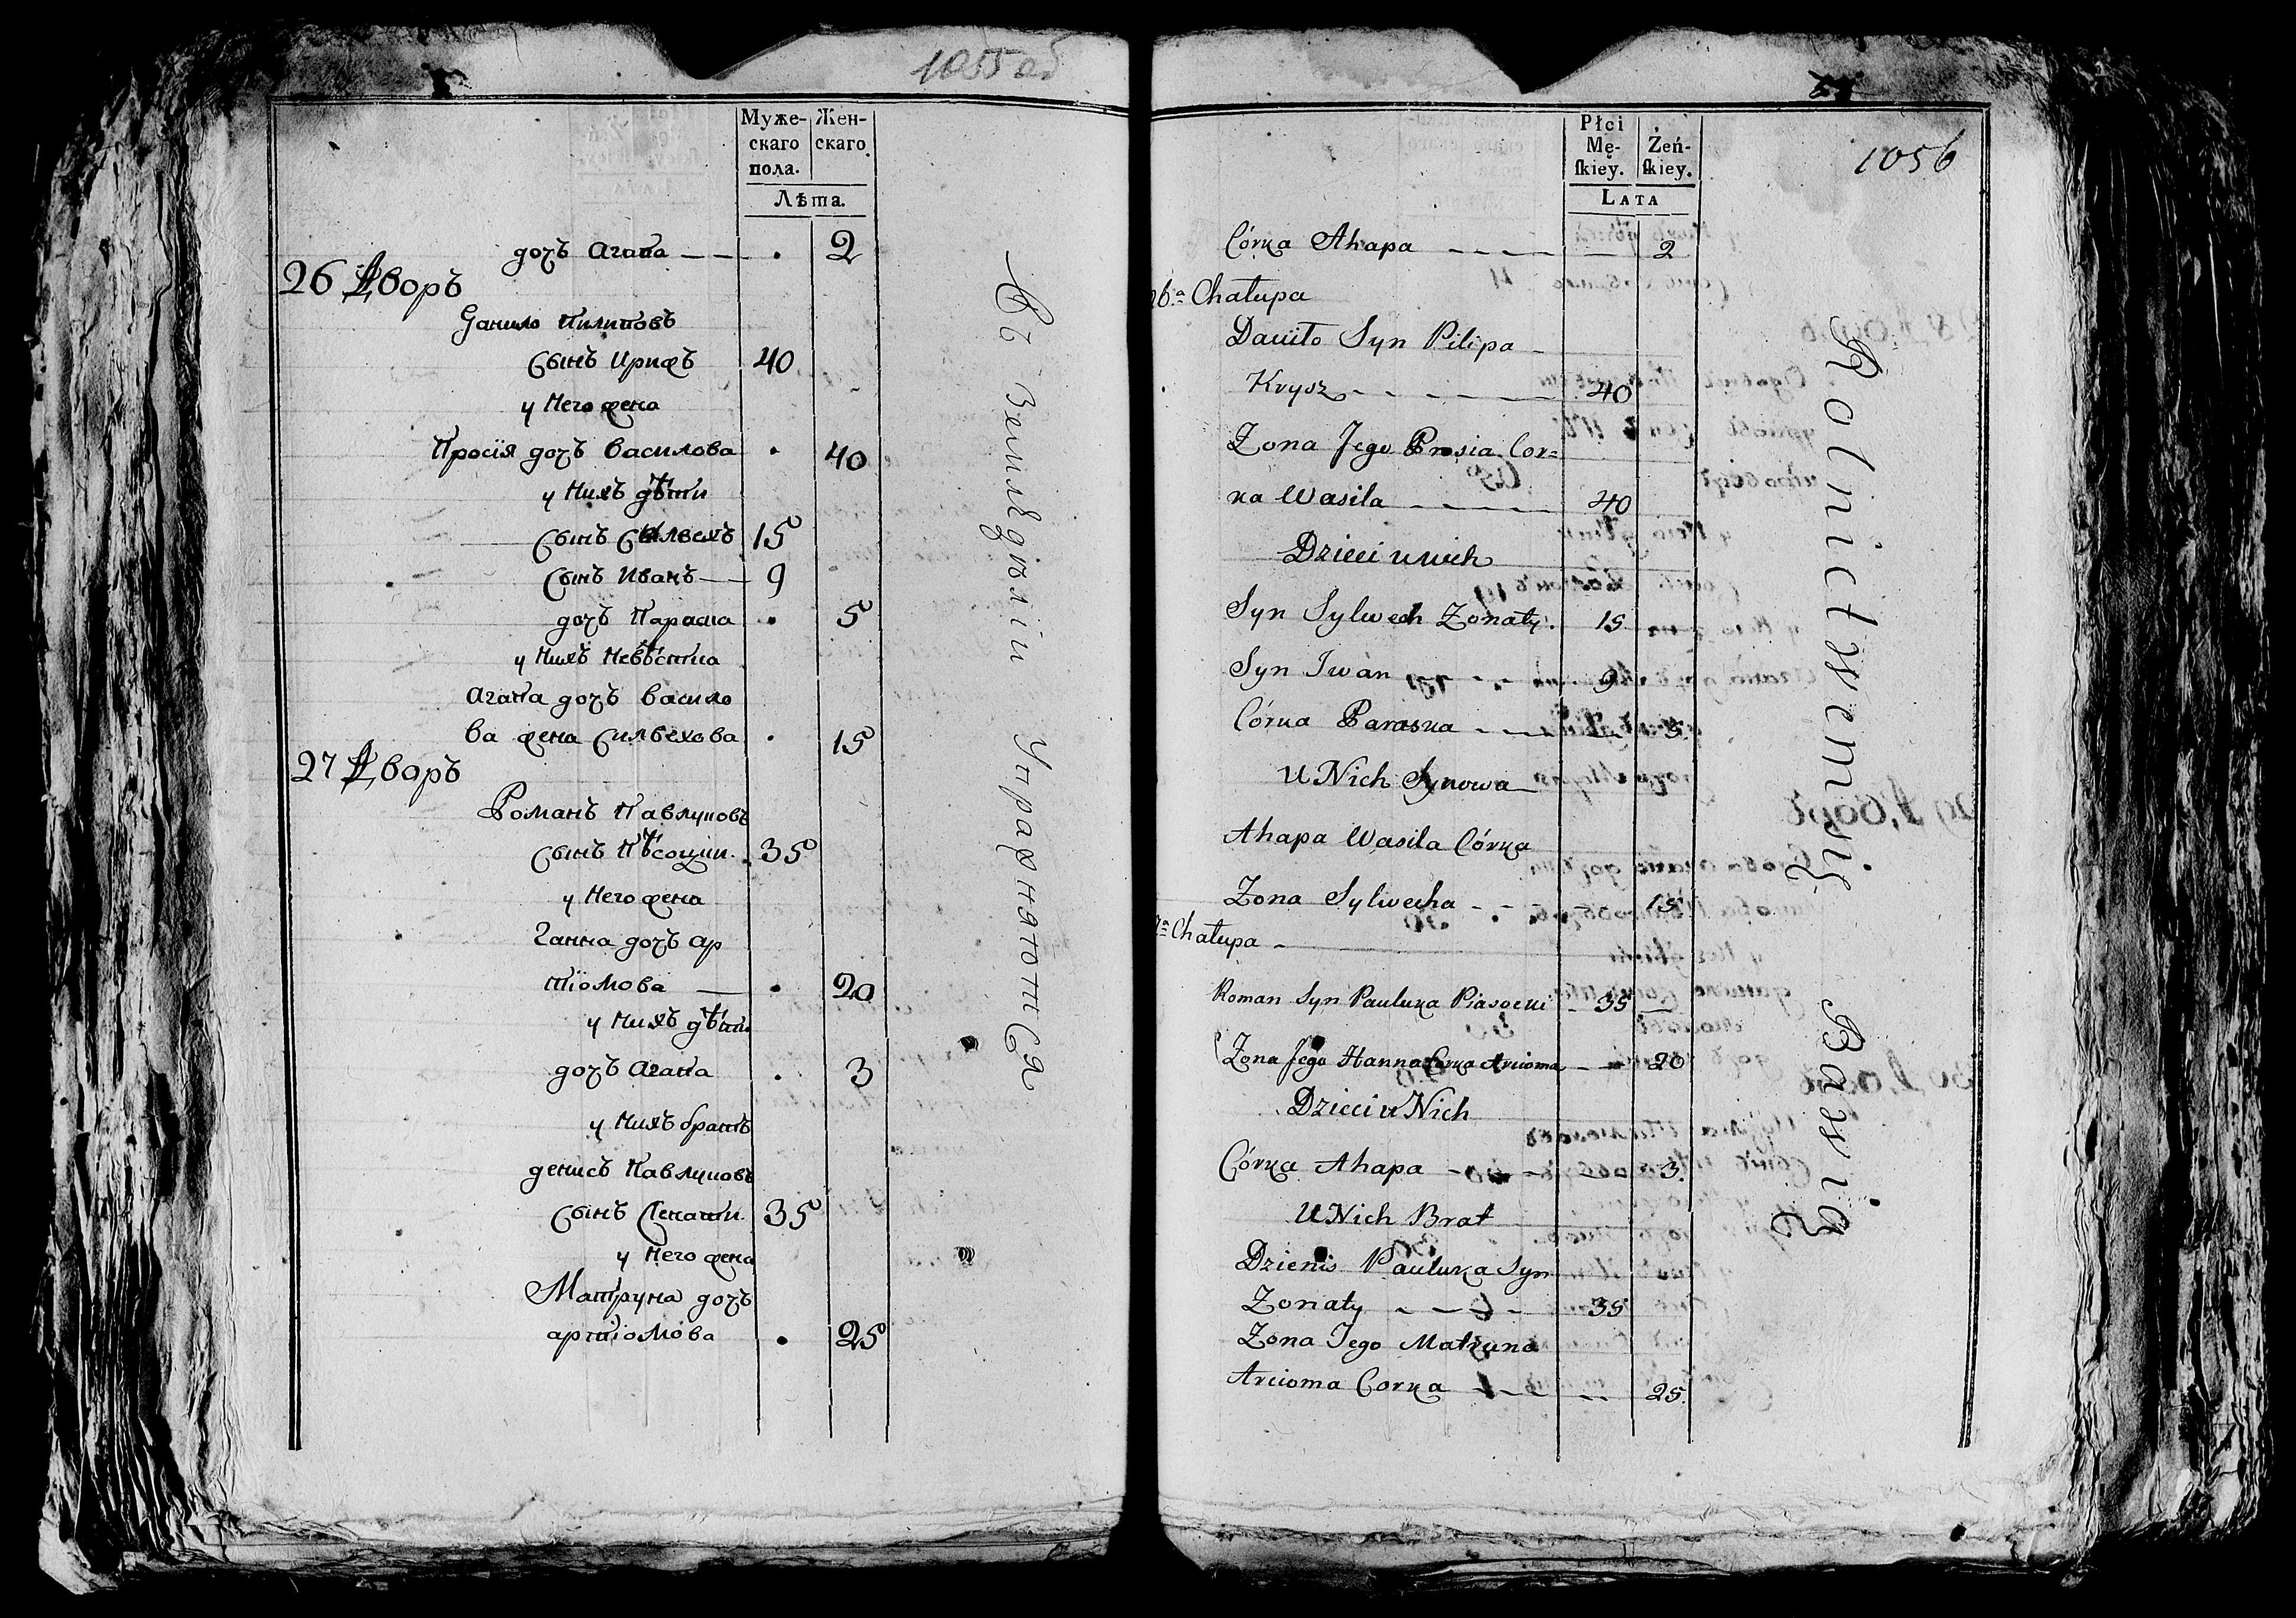 1055 об
Муже-
скаго
пола.
Жен-
скаго
Лѣта.
дочъ Агапа — — . 2
26 Дворъ
Данило Пилиповъ
Сынъ Ириж 40
у Него жена
Просія дочъ Василова . 40
у Нихъ дѣти
Сынъ Сылвехъ 15
Сынъ Иванъ — 9
дочъ Параска . 5
у Нихъ Невѣстка
Агапа дочъ Васило
ва жена Силвехова . 15
27 Дворъ
Романъ Павлуковъ
Сынъ Пѣсоцки 35
у Него жена
Ганна дочъ ар
тіомова — . 20
у Нихъ дѣти
дочъ Агапа . 3
у Нихъ братъ
денисъ Павлуковъ
Сынъ Женати 35
у Него жена
Матруна дочъ
артіомова . 25
Въ Земледѣліи Упражняются
1056
Płci
Mę-
skiey.
Żeń-
skiey.
LATA
Córka Ahapa — — — — 2
26.a Chałupa
Daniło Syn Pilipa —
Krysz — — — 40
Zona Jego Prosia Cor=
ka Wasila — — — 40
Dzieci u nich
Syn Sylwech Zonaty. 15
Syn Iwan 9
Córka Paraska — — — 5
U Nich Synowa
Ahapa Wasila Córka
Zona Sylwecha — — — 15
7a Chałupa —
Roman Syn Pauluka Piasocki — 35 —
Zona Jego Hanna Corka Arcioma — — 20
Dzieci u Nich
Córka Ahapa — — — 3.
U Nich Brat
Dzienis Pauluka Syn
Zonaty — — — 35
Zona Jego Matruna
Arcioma Corka — — — 25.
Rolnictwem się Bawią